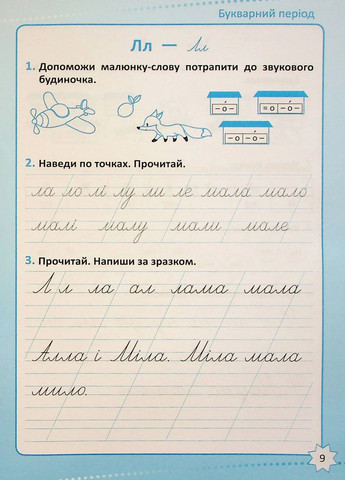 Букварний період
Лл — Лл
1. Допоможи малюнку-слову потрапити до звукового
будиночка.
2. Наведи по точках. Прочитай.
ла ло лі лу ли ле мала мало
малі малу мали мале
3. Прочитай. Напиши за зразком.
Л л ла ал лама мала
Алла і Міла. Міла мала
мило.
9